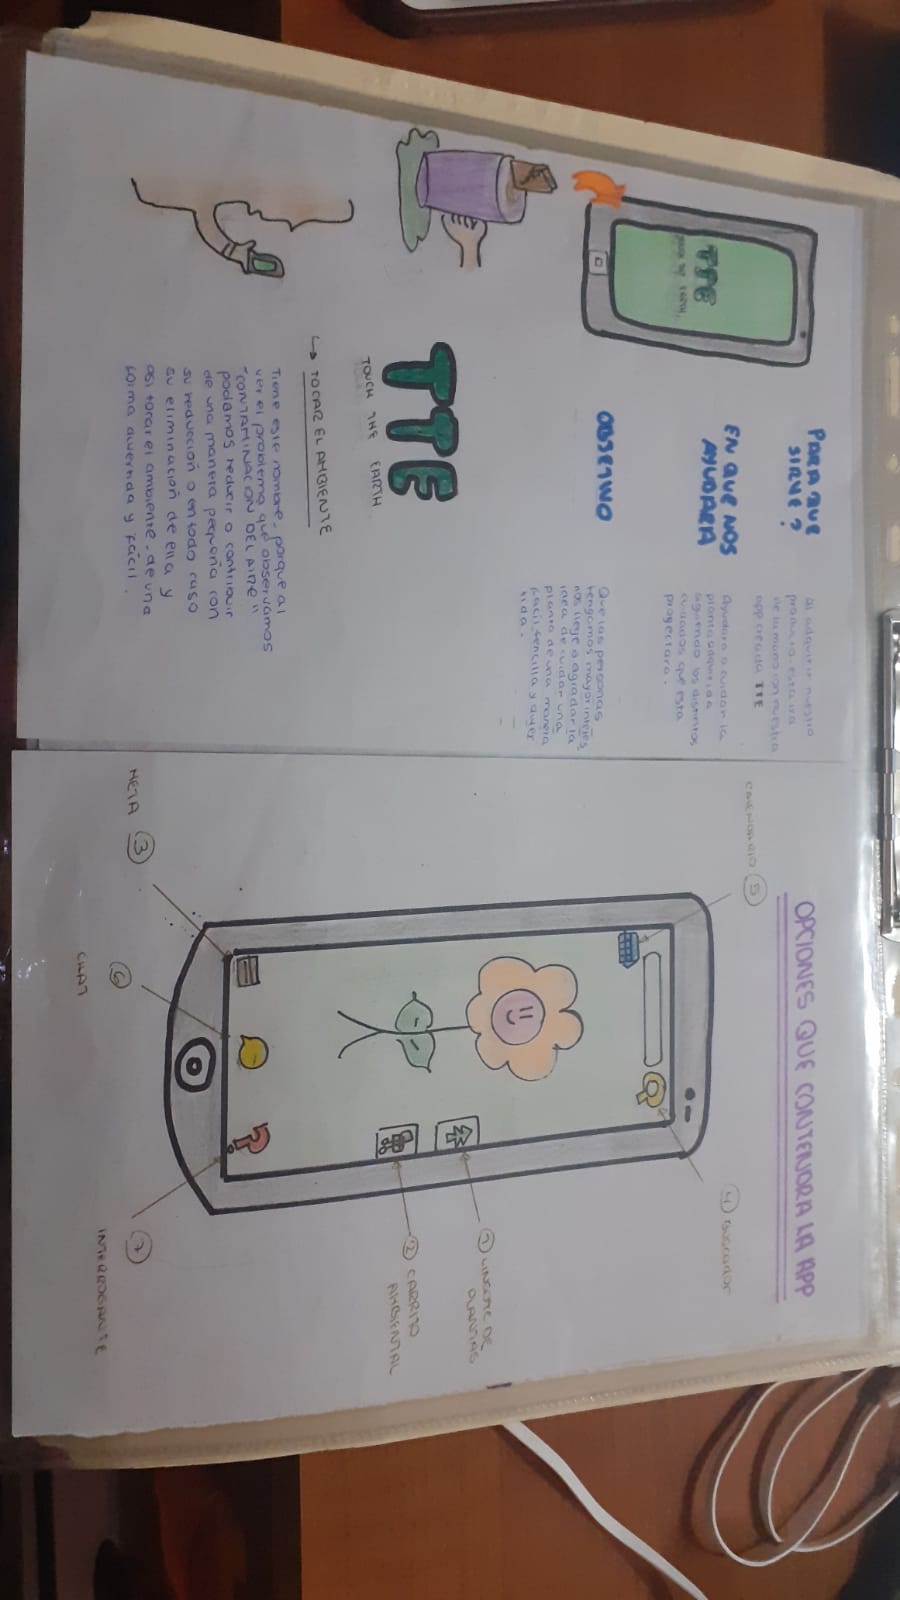 PARA QUE
SIRVE?
Al adquirir nuestro
producto, esta ira
de la mano con nuestra
app creada TTE
EN QUE NOS
AYUDARA
Ayudara a cuidar la
planta adquirida
siguiendo los distintos
cuidados que esta
proyectara.
OBJETIVO
Que las personas
tengamos mayor interés,
nos llege a agradar la
idea de cuidar una
planta de una manera
fácil, sencilla y diver
tida.
TTE
TOUCH THE EARTH
TTE
TOUCH THE EARTH
TOCAR EL AMBIENTE
Tiene este nombre, porque al
ver el problema que observamos
"CONTAMINACION DEL AIRE"
podamos reducir o contribuir
de una manera pequeña con
su reducción o en todo caso
su eliminación de ella y
asi tocar el ambiente, de una
forma divertida y fácil.
OPCIONES QUE CONTENDRA LA APP
CALENDARIO 5
4 BUSCADOR
1 LINGOTE DE
PLANTAS
2 CARRITO
AMBIENTAL
META 3
6
CHAT
7
INTERROGANTE